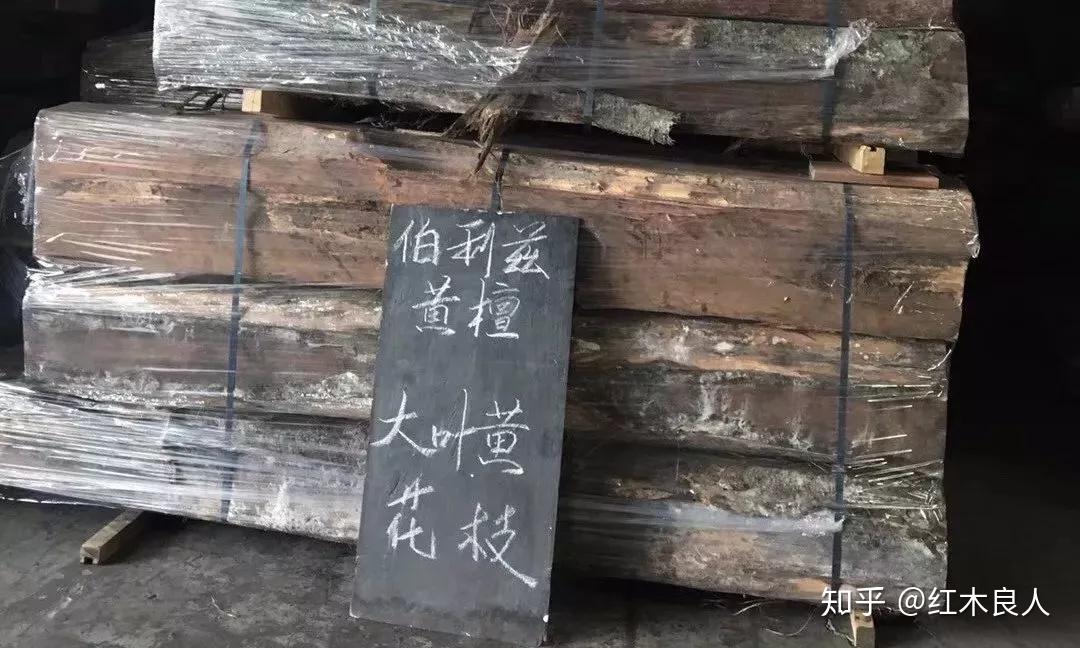 伯利兹
黄檀
大叶黄
花枝
知乎 @红木良人